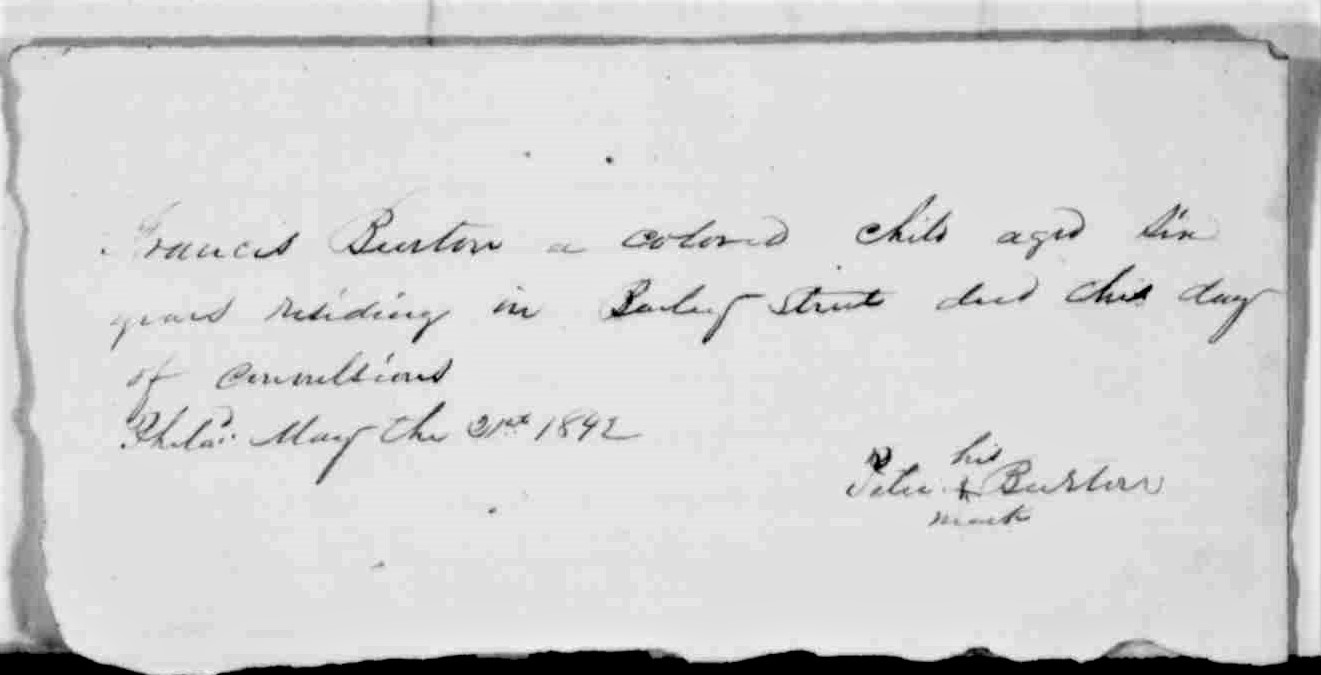 Francis Burton a colored child aged Six
years residing in Barley Street died this day
of convultions
Philad. May the 21st 1842
his
Peter + Burton
mark